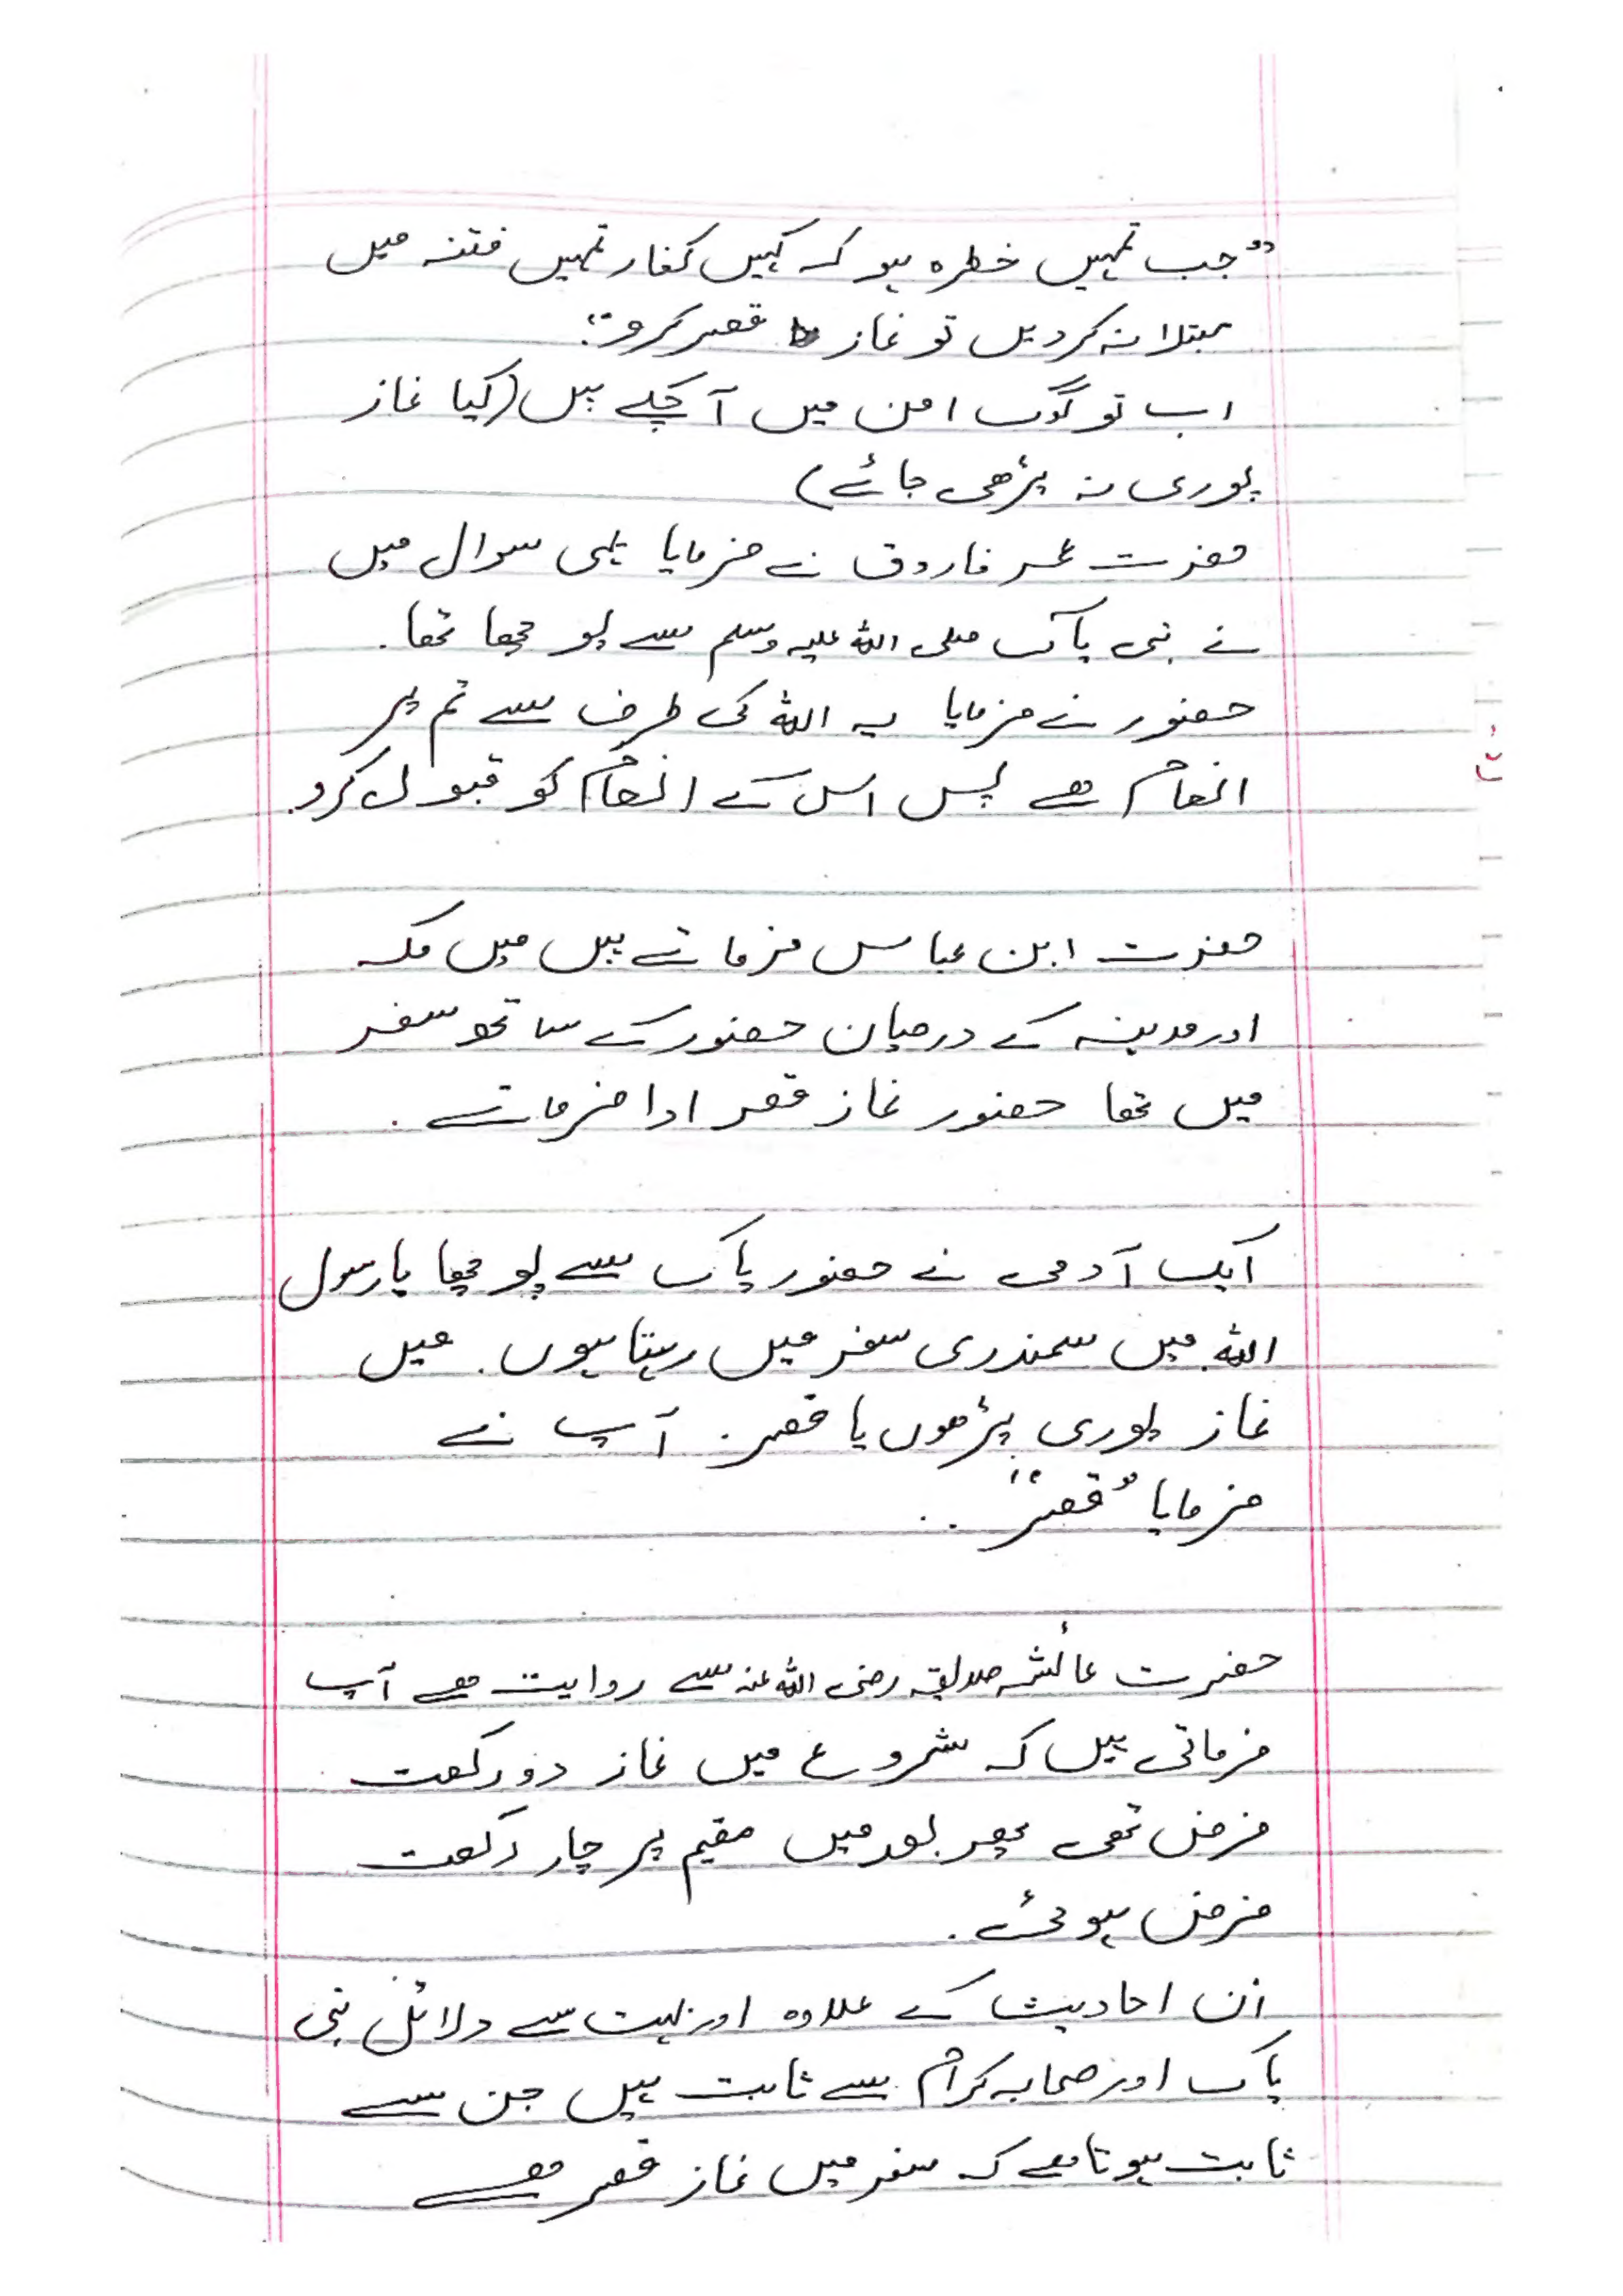 "جب تمہیں خطرہ ہو کہ کہیں کفار تمہیں فتنہ میں
مبتلا نہ کردیں تو نماز قصر کرو"۔
اب تو لوگ امن میں آ چکے ہیں (کیا نماز
پوری نہ پڑھی جائے)
حضرت عمر فاروق نے فرمایا یہی سوال میں
نے نبی پاک صلی اللہ علیہ وسلم سے پوچھا تھا۔
حضور نے فرمایا یہ اللہ کی طرف سے تم پر
انعام ھے پس اس کے انعام کو قبول کرو۔
حضرت ابن عباس فرماتے ہیں میں مکہ
اور مدینہ کے درمیان حضور کے ساتھ سفر
میں تھا حضور نماز قصر ادا فرماتے۔
ایک آدمی نے حضور پاک سے پوچھا یا رسول
اللہ میں سمندری سفر میں رہتا ہوں۔ میں
نماز پوری پڑھوں یا قصر۔ آپ نے
فرمایا "قصر"۔۔
حضرت عائشہ صدیقہ رضی اللہ عنہ سے روایت ھے آپ
فرماتی ہیں کہ شروع میں نماز دو رکعت
فرض تھی پھر بعد میں مقیم پر چار رکعت
فرض ہوئی۔
ان احادیث کے علاوہ اور بہت سے دلائل نبی
پاک اور صحابہ کرام سے ثابت ہیں جن سے
ثابت ہوتا ھے کہ سفر میں نماز قصر ھے